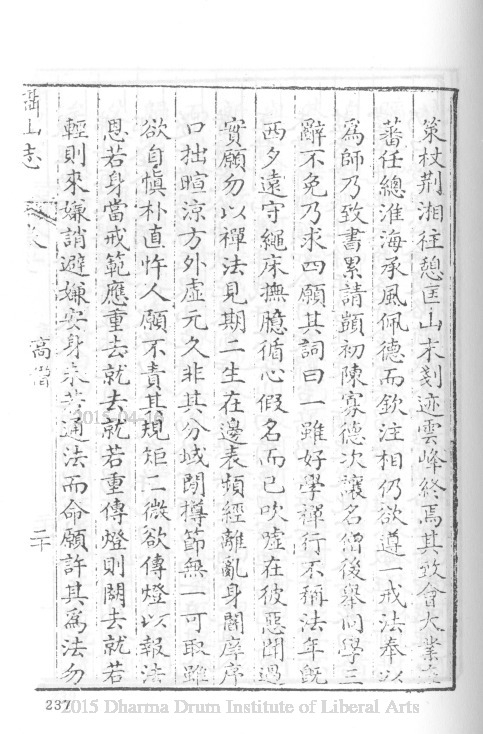 策杖荆湘往憩匡山末刻迹雲峰終焉其致會大業在
蕃任總淮海承風佩德而欽注相仍欲遵一戒法奉以
為師乃致書累請顗初陳寡德次讓名僧後舉同學三
辭不免乃求四願其詞曰一雖好學禪行不稱法年既
西夕遠守繩床撫臆循心假名而已吹噓在彼惡聞過
實願勿以禪法見期二生在邊表頻經離亂身闇庠序
口拙暄涼方外虛元久非其分域間撙節無一可取雖
欲自慎朴直忤人願不責其規矩三微欲傳燈以報法
恩若身當戒範應重去就去就若重傳燈則闕去就若
輕則來嫌誚避嫌安身未若通法而命願許其為法勿
山志
高僧
二十
2015-04-16
237
2015 Dharma Drum Institute of Liberal Arts